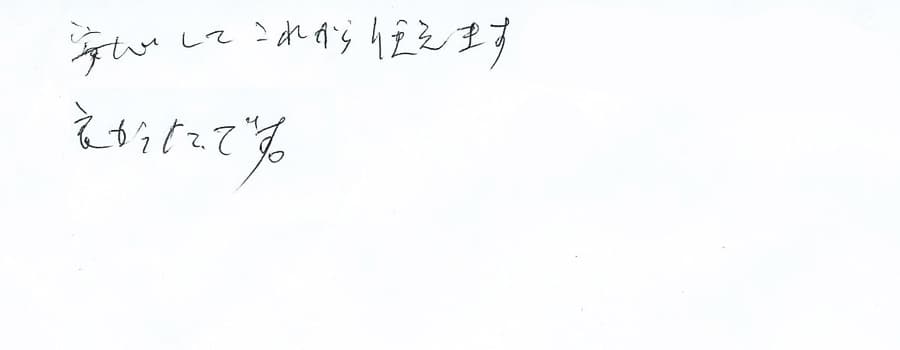 安心してこれから住えます
良かったです。